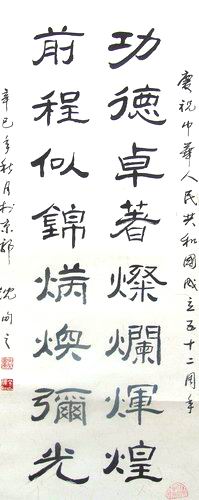 慶祝中華人民共和國成立五十二周年
功德卓著燦爛輝煌
前程似錦煥彌光
辛巳年秋月於京郊 沈